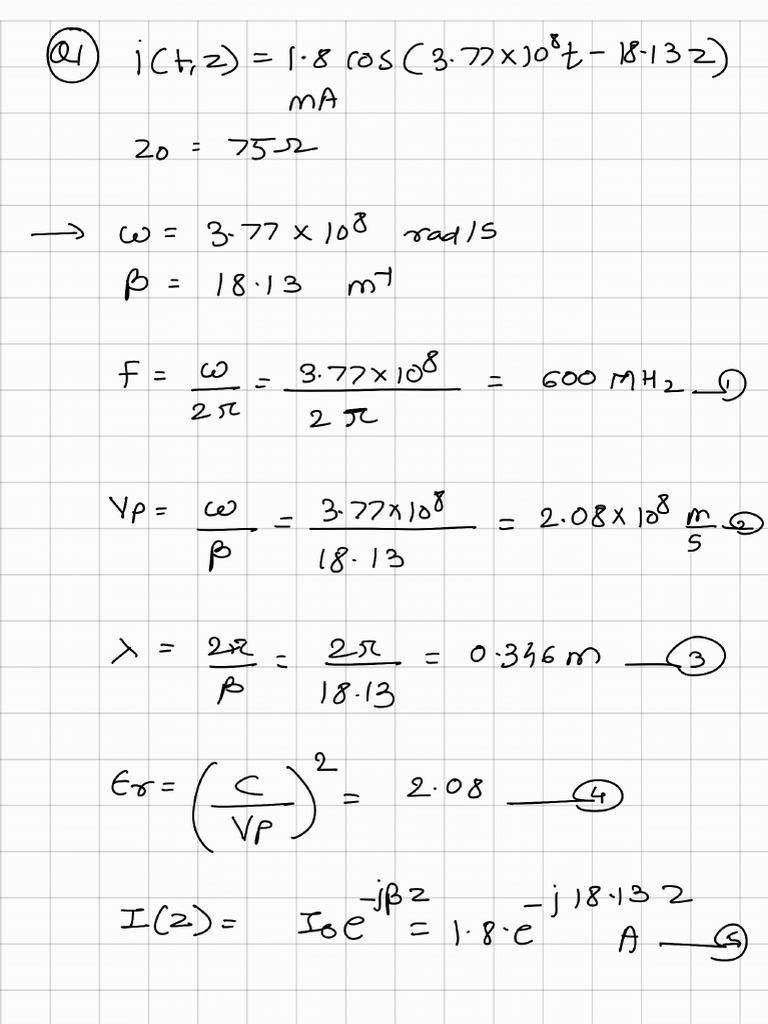 Q1 i(t,z) = 1.8 cos(3.77×10⁸t - 18.13z)
mA
Zo = 75Ω
→ ω = 3.77 × 10⁸ rad/s
β = 18.13 m⁻¹
f = ω/2π = 3.77×10⁸/2π = 600 MHz — ①
Vp = ω/β = 3.77×10⁸/18.13 = 2.08×10⁸ m/s — ②
λ = 2π/β = 2π/18.13 = 0.346 m — ③
Er = (C/Vp)² = 2.08 — ④
I(z) = I₀e^-jβz = 1.8·e^-j18.13z A — ⑤